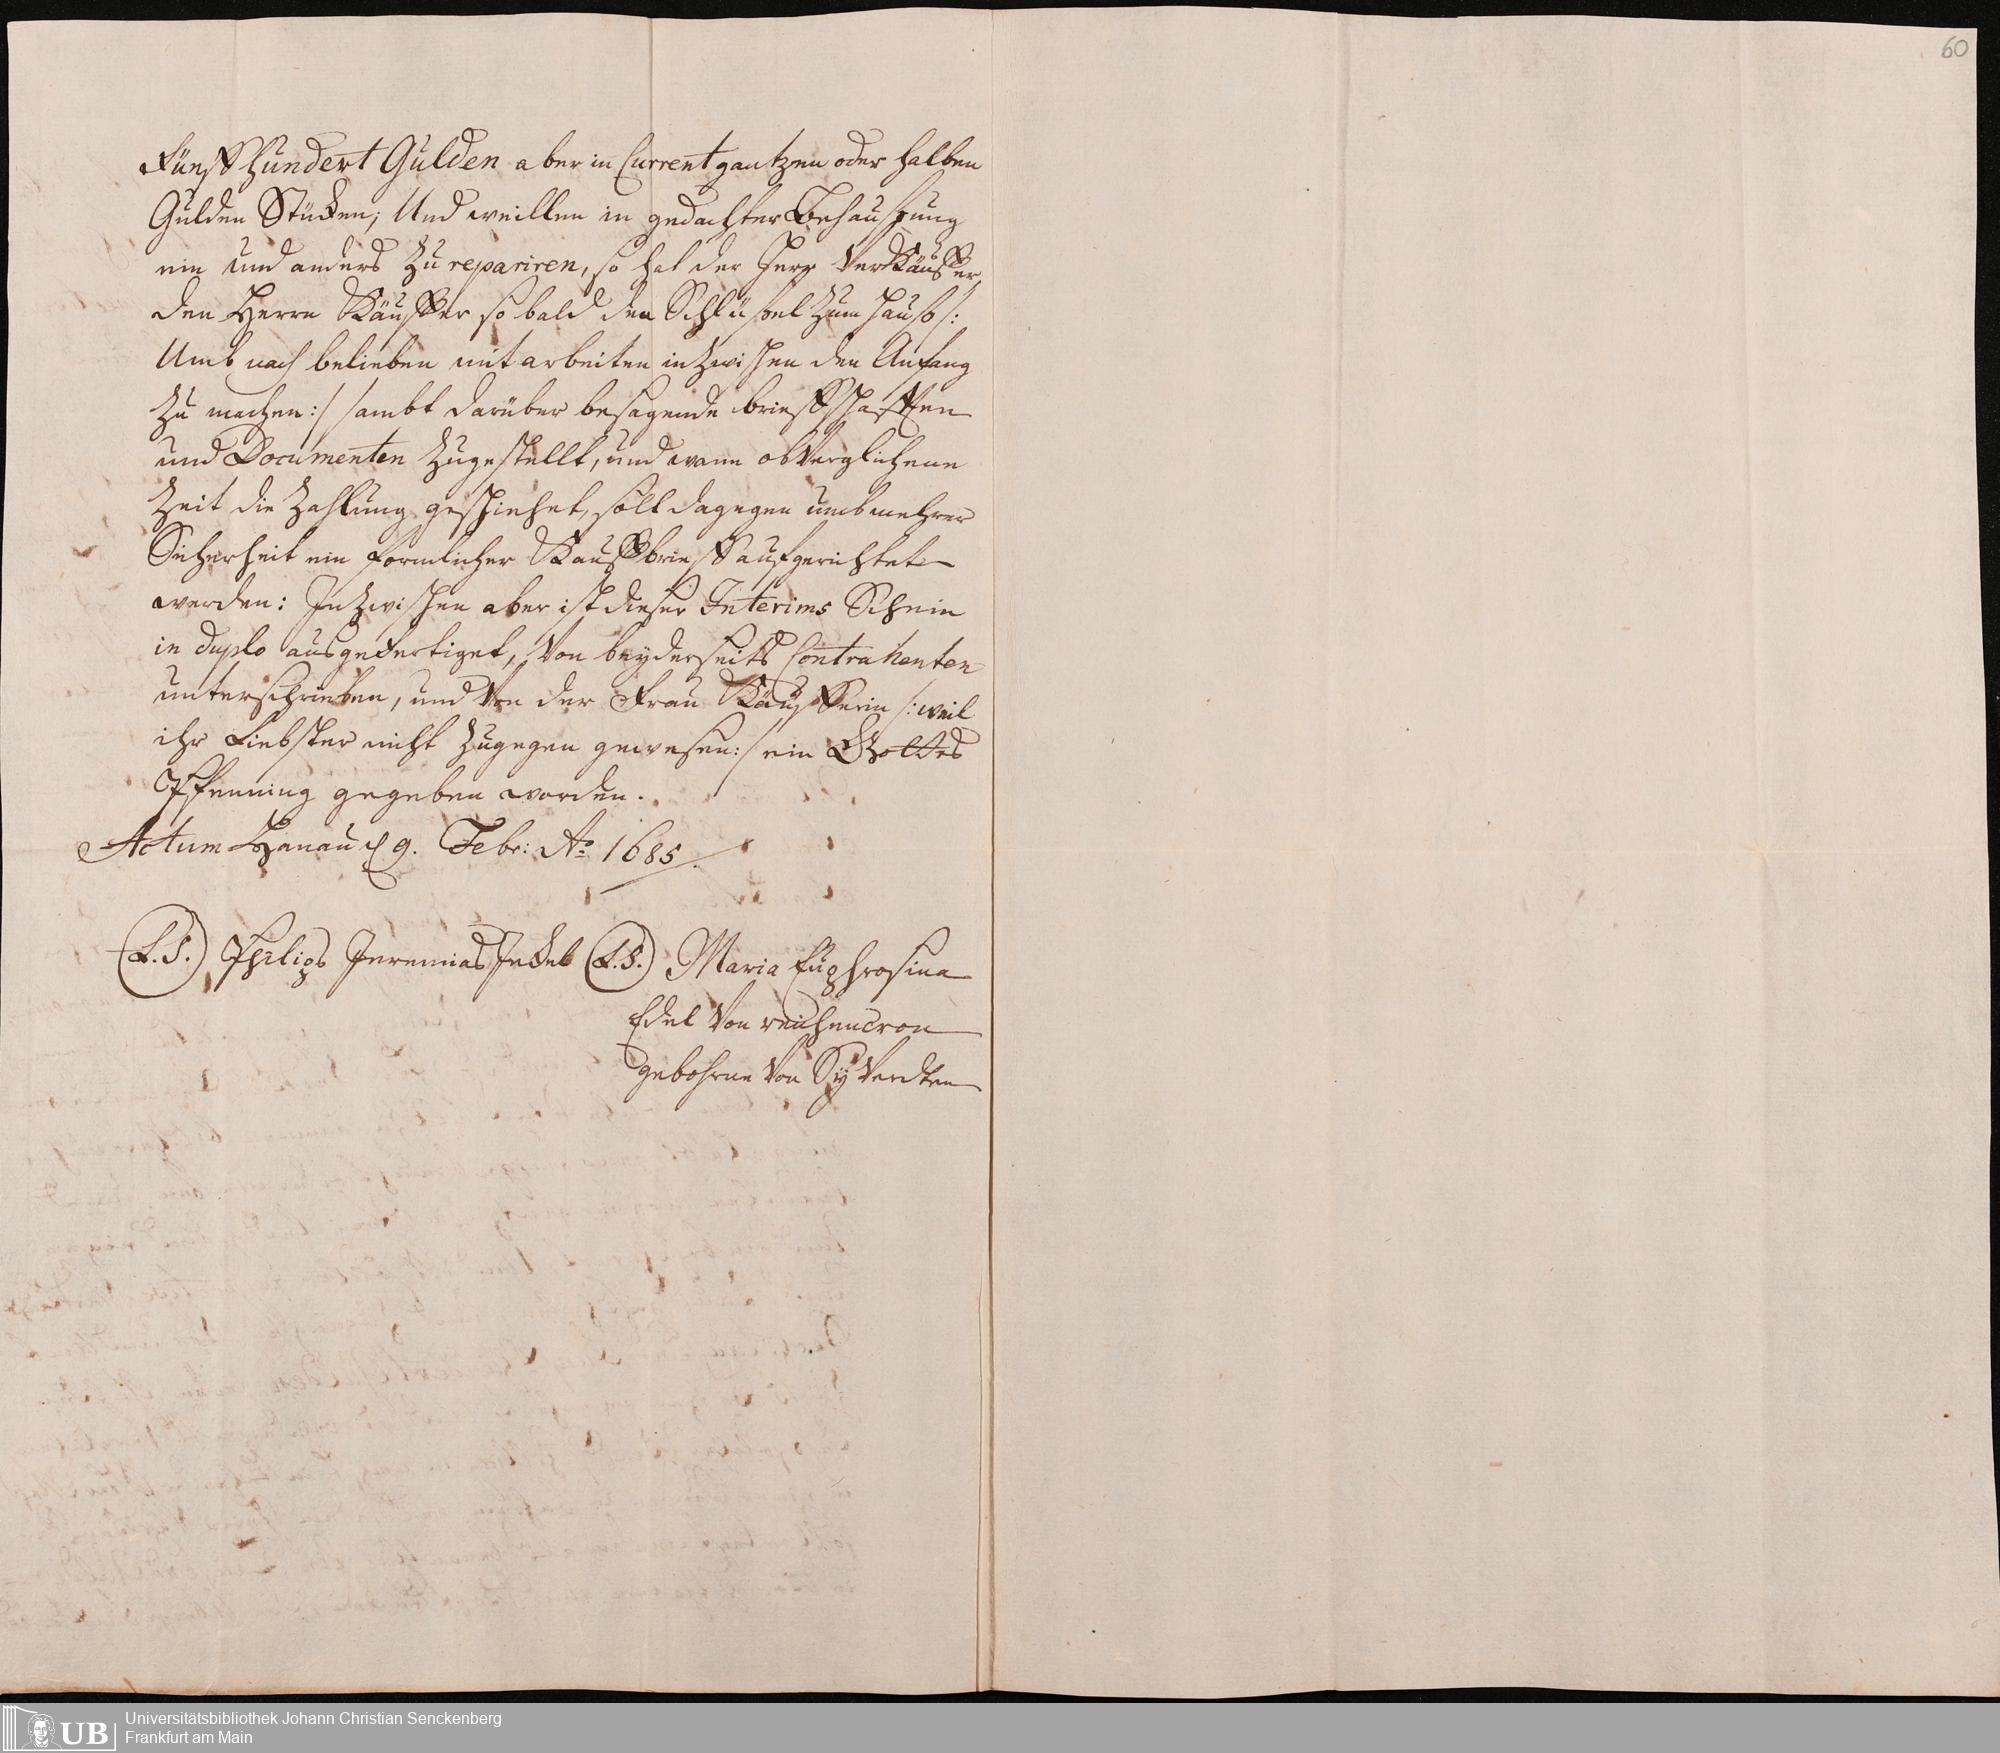 60
Fünff Hundert Gulden aber in Current gantzen oder halben
Gulden Stücken; Und weillen in gedachter Behaußung
ein und anders zu repariren, so hat der Herr Verkäuffer
den Herrn Käuffer so bald den Schlüßel zum Hauß /:
Umb nach belieben mit arbeiten inzwischen den Anfang
zu machen :/ sambt darüber besagende brieffschafften
und Documenten zugestellt, und wann obverglichene
Zeit die Zahlung geschiehet, soll dagegen umb mehrer
Sicherheit ein formlicher Kauffbrieff aufgerichtet
werden: Inzwischen aber ist dieser Interims Schein
in duplo ausgefertiget, von beyderseits Contrahenten
unterschrieben, und von der Frau Käufferin /: weil
ihr Liebster nicht zugegen gewesen :/ ein Gottes
Pfenning gegeben worden.
Actum Hanau d 9. Febr: Ao 1685.
(L.S.) Philips Jeremias Jeckel (L.S.) Maria Euphrosina
Edel von reichencron
gebohrne von Syverdten
UB Universitätsbibliothek Johann Christian Senckenberg
Frankfurt am Main